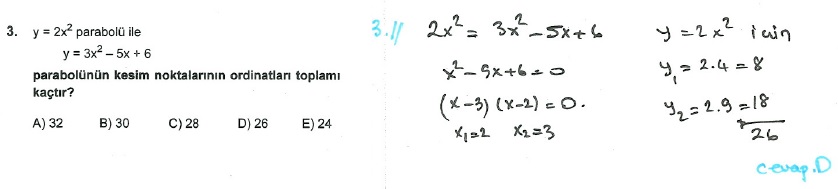 3. y = 2x² parabolü ile
y = 3x² – 5x + 6
parabolünün kesim noktalarının ordinatları toplamı
kaçtır?
A) 32 B) 30 C) 28 D) 26 E) 24
3.//
2x² = 3x² – 5x + 6
x² – 5x + 6 = 0
(x – 3) (x – 2) = 0.
x₁ = 2 x₂ = 3
y = 2x² için
y₁ = 2.4 = 8
y₂ = 2.9 = 18
+
26
cevap.D